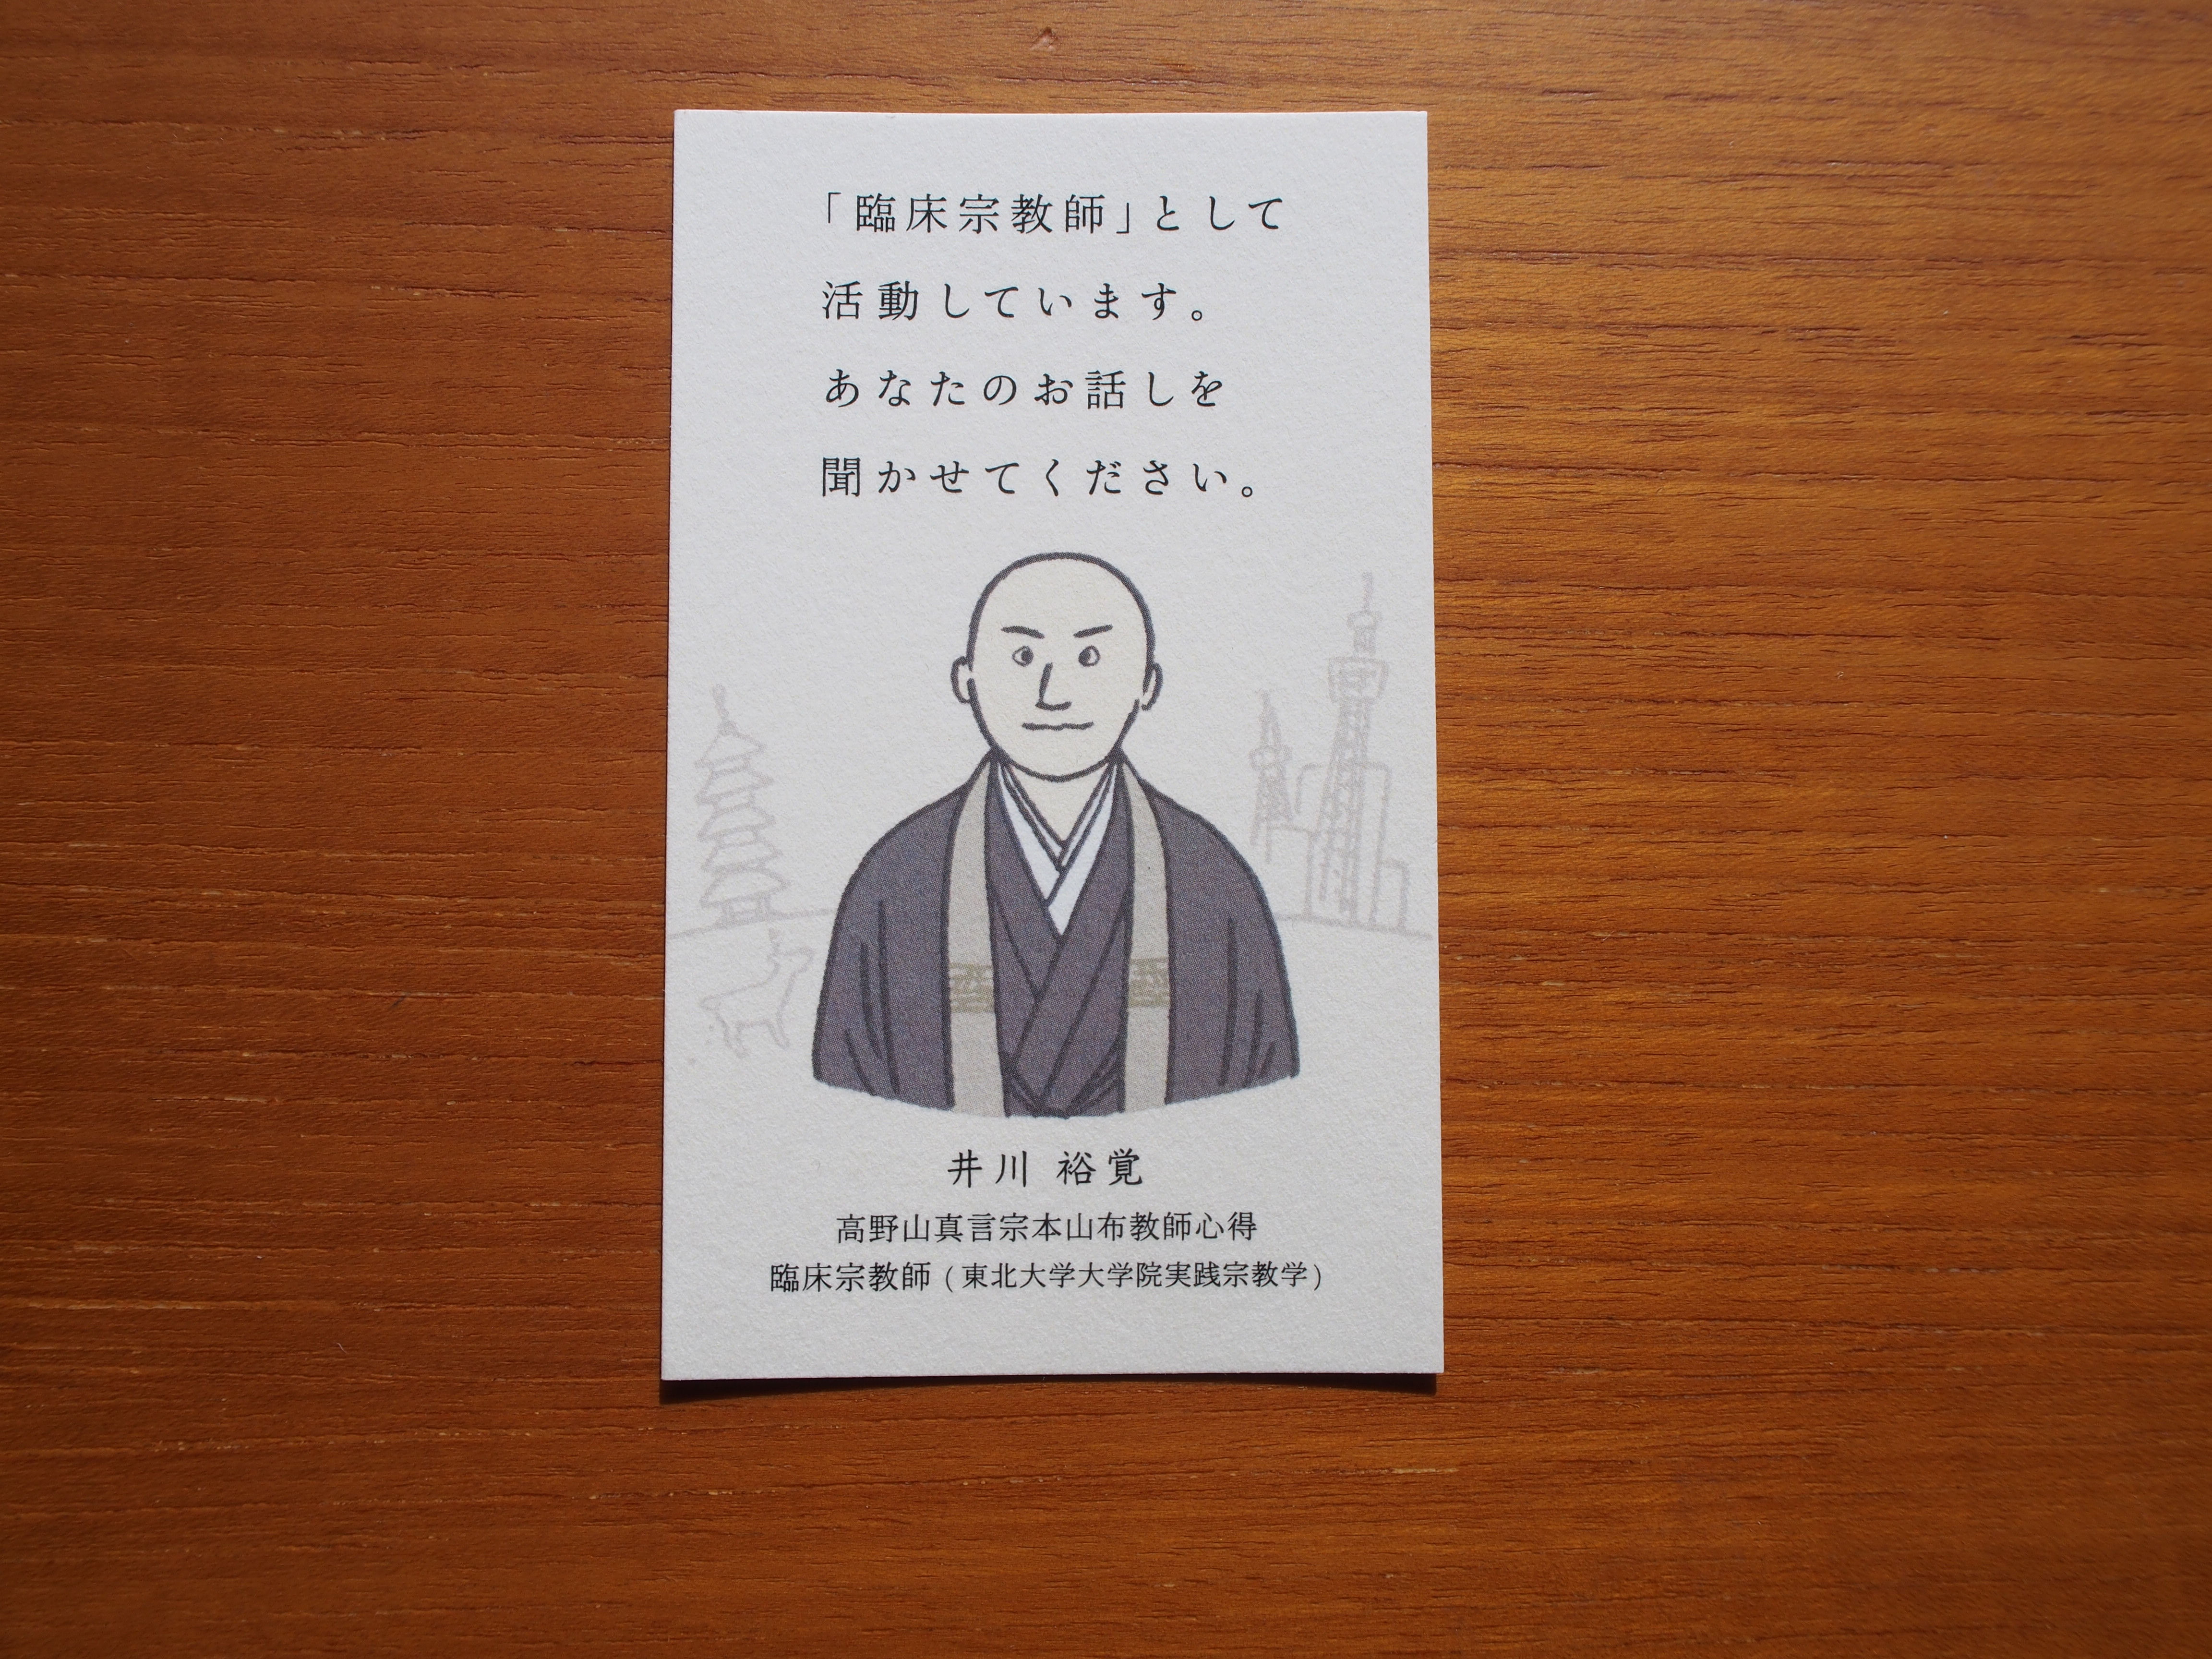 「臨床宗教師」として
活動しています。
あなたのお話しを
聞かせてください。
井川 裕覚
高野山真言宗本山布教師心得
臨床宗教師（東北大学大学院実践宗教学）